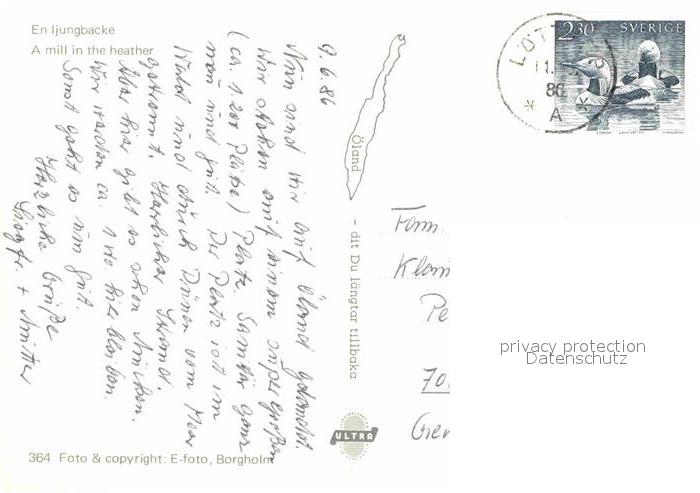 En ljungbacke
A mill in the heather
9.6.86
Nun sind wir auf Öland gelandet.
Wir stehen auf einem super großen
(ca. 1200 Plätze) Platz. Sanitär ganz
neu und gut. Der Platz ist im
Wald und durch Dünen vom Meer
getrennt. Herrlicher Strand.
Aber hier gibt es schon Mücken.
Wir werden ca. 1 Wo hier bleiben.
Sonst geht es uns gut.
Herzliche Grüße
Siegfr. +
Öland
- dit Du längtar tillbaka
ULTRA
364 Foto & copyright: E-foto, Borgholm
LÖTT
11.
86
* A *
2.30 SVERIGE
Fam.
70
privacy protection
Datenschutz